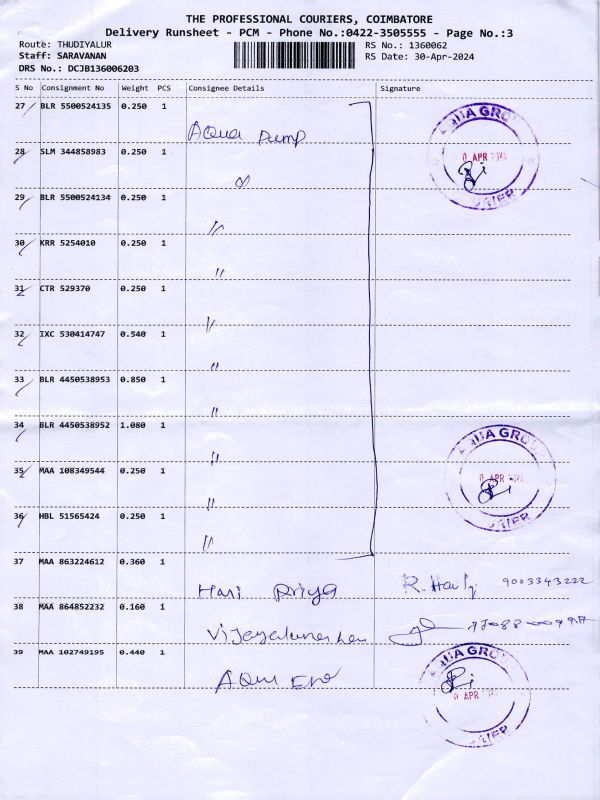 THE PROFESSIONAL COURIERS, COIMBATORE
Delivery Runsheet - PCM - Phone No.:0422-3505555 - Page No.:3
Route: THUDIYALUR RS No.: 1360062
Staff: SARAVANAN RS Date: 30-Apr-2024
DRS No.: DCJB136006203
S No Consignment No Weight PCS Consignee Details Signature
27 BLR 5500524135 0.250 1
Aqua Pump
28 SLM 344858983 0.250 1
29 BLR 5500524134 0.250 1
〃
30 KRR 5254010 0.250 1
〃
31 CTR 529370 0.250 1
〃
32 IXC 530414747 0.540 1
〃
33 BLR 4450538953 0.850 1
〃
34 BLR 4450538952 1.080 1
〃
35 MAA 108349544 0.250 1
〃
36 HBL 51565424 0.250 1
〃
37 MAA 863224612 0.360 1
Hari Priya 9003343222
38 MAA 864852232 0.160 1
39 MAA 102749195 0.440 1
AQUA GRO
APR
AQUA GRO
APR
AQUA GRO
APR